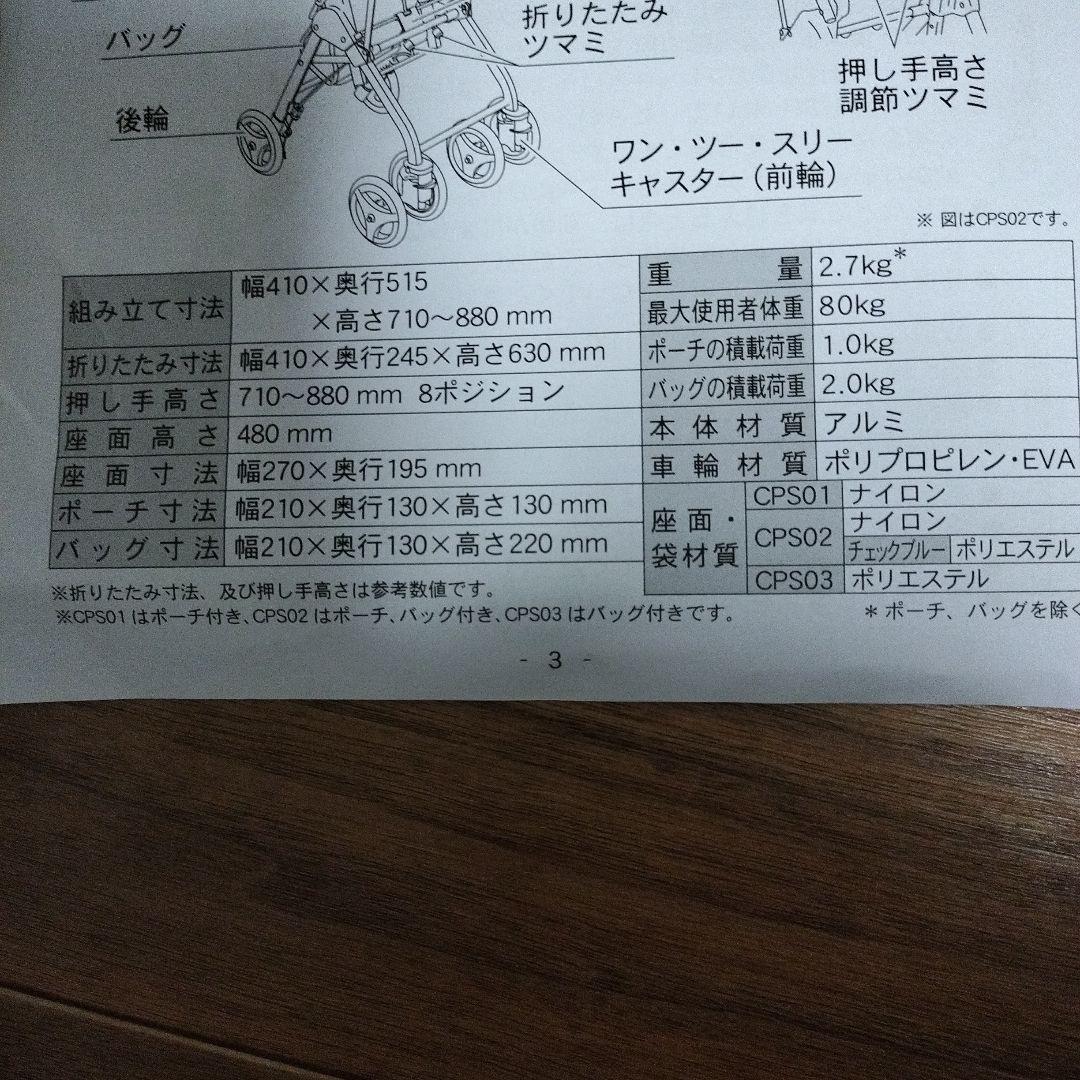 バッグ
後輪
折りたたみ
ツマミ
押し手高さ
調節ツマミ
ワン・ツー・スリー
キャスター(前輪)
※ 図はCPS02です。
組み立て寸法 幅410×奥行515
×高さ710～880 mm
折りたたみ寸法 幅410×奥行245×高さ630 mm
押し手高さ 710～880 mm 8ポジション
座面高さ 480 mm
座面寸法 幅270×奥行195 mm
ポーチ寸法 幅210×奥行130×高さ130 mm
バッグ寸法 幅210×奥行130×高さ220 mm
重量 2.7kg*
最大使用者体重 80kg
ポーチの積載荷重 1.0kg
バッグの積載荷重 2.0kg
本体材質 アルミ
車輪材質 ポリプロピレン・EVA
座面・
袋材質
CPS01 ナイロン
CPS02 ナイロン
チェックブルー ポリエステル
CPS03 ポリエステル
※折りたたみ寸法、及び押し手高さは参考数値です。
※CPS01はポーチ付き、CPS02はポーチ、バッグ付き、CPS03はバッグ付きです。
* ポーチ、バッグを除く
- 3 -